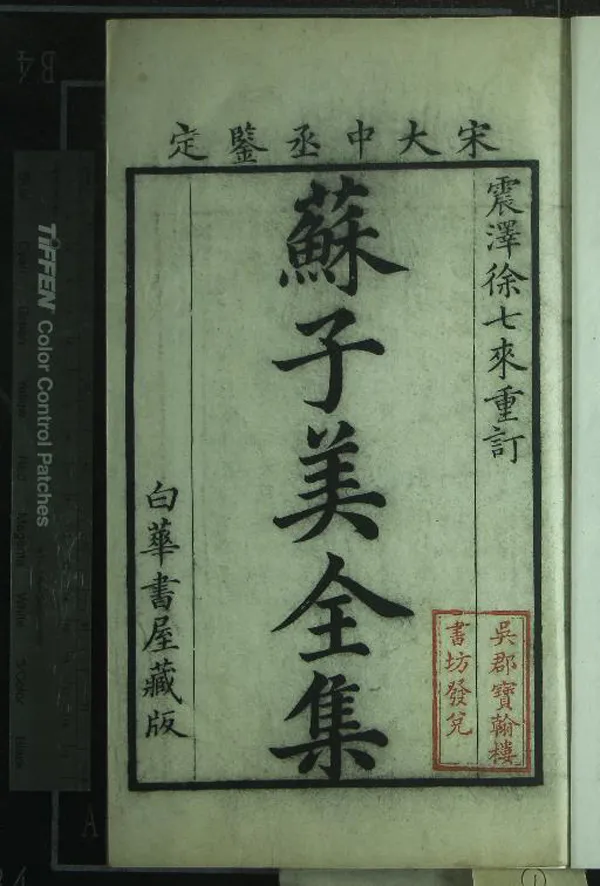 宋大中丞鑒定
震澤徐七來重訂
蘇子美全集
白華書屋藏版
吳郡寶翰樓
書坊發兌
TIFFEN Color Control Patches
B4
A
1